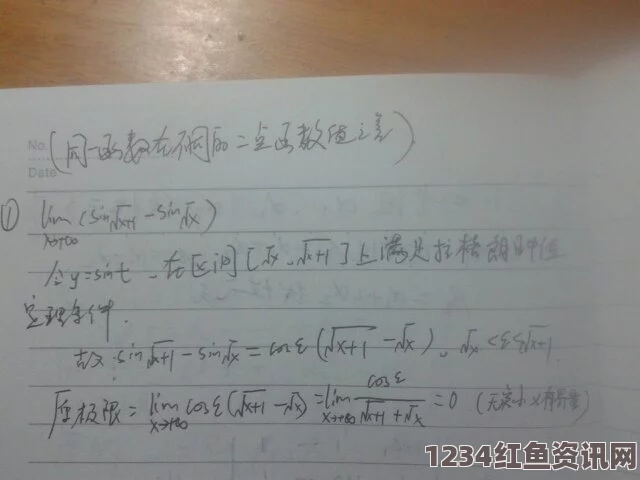 No.
Date
(同一函数在不同的二点函数值之差)
① lim(sin√x+1 - sin√x)
x→+∞
令y=sint, 在区间[√x, √x+1]上满足拉格朗日中值
定理条件.
故: sin√x+1 - sin√x = cosξ(√x+1 - √x), √x<ξ<√x+1
原极限 = lim x→+∞ cosξ(√x+1 - √x) = lim x→+∞ cosξ/(√x+1 + √x) = 0 (无穷小×有界量)
1234红鱼资讯网